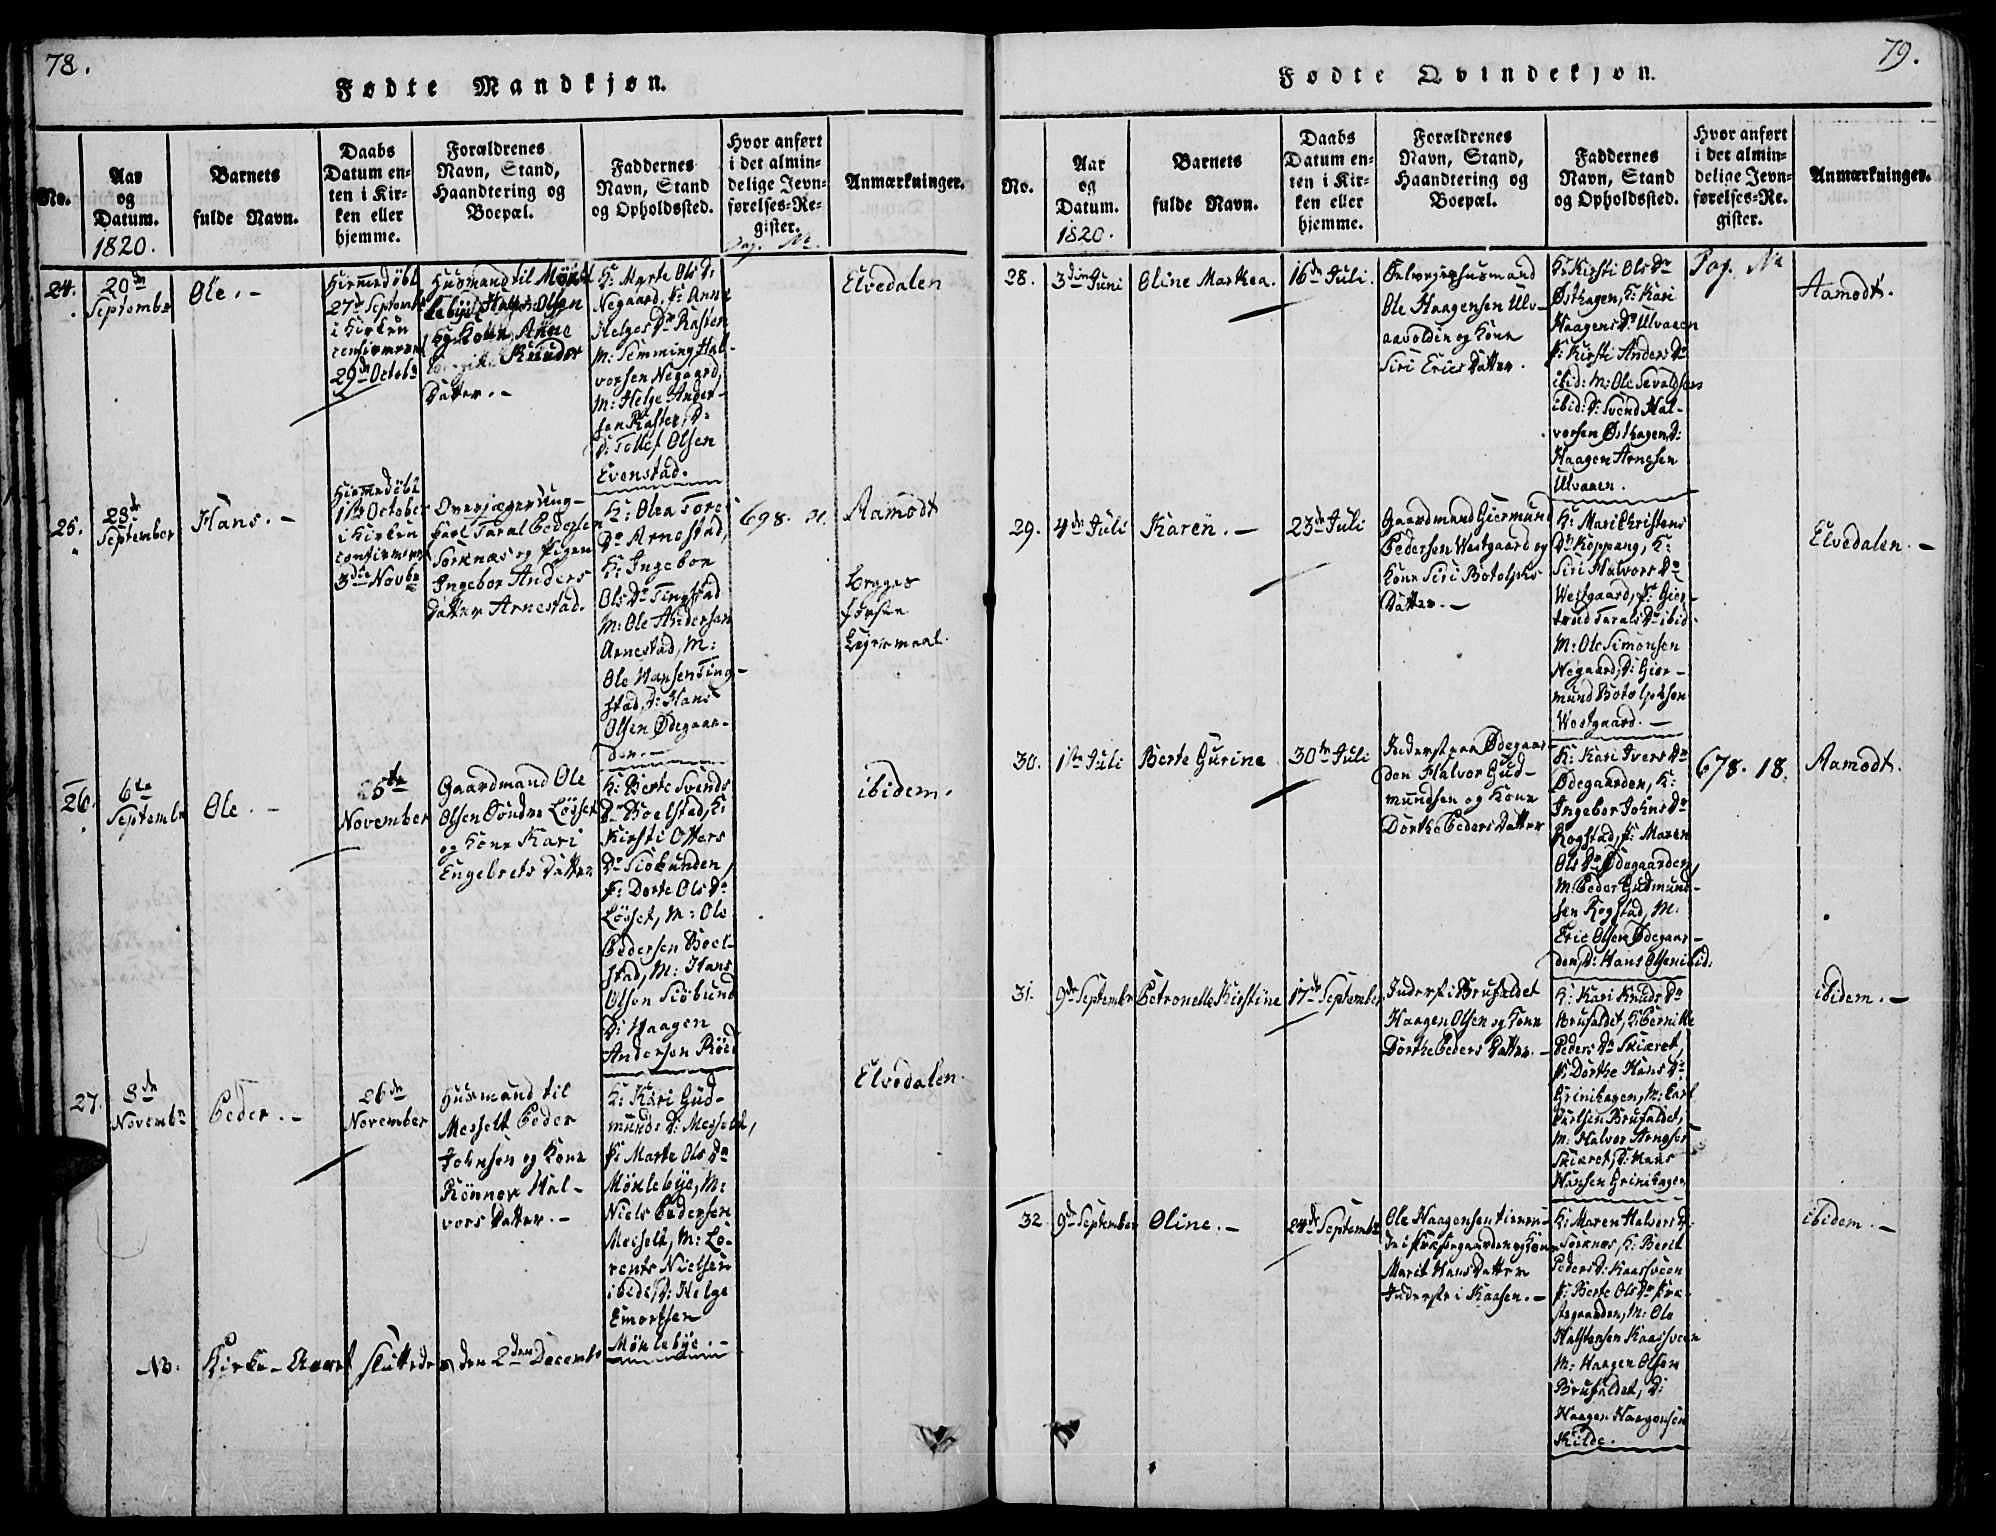 78.
Fødte Mandkjøn.
No.
Aar
og
Datum.
1820.
Barnets
fulde Navn.
Daabs
Datum en-
ten i Kir-
ken eller
hjemme.
Forældrenes
Navn, Stand,
Haandtering og
Boepæl.
Faddernes
Navn, Stand
og Opholdssted.
Hvor anført
i det almin-
delige Jevn-
førelses-Re-
gister.
Pag. No.
Anmærkninger.
24.
20de
Septembr
Ole. -
Hiemmedøbt
27de Septembr
i Kirken
29de Octobr
Husmand til
Datter. -
K: Marte Ols Dr
Negaard, P: Anne
Helges Dr Rasten
M: Semming Hal-
vorsen Negaard,
M: Helge Ander-
sen Rasten, D:
D: Tollef Olsen
Evenstad.
Elvedalen
25.
28de
September
Hans. -
Hiemmedøbt
1ste October
i Kirken
confirmeret
3die Novbr
Overjæger Ung-
karl Taral Pedersen
Sorknæs og Pigen
Ingebor Anders
Datter Arnestad.
K: Olea Tores
Dr Arnestad,
K: Ingebor
Ols Dr Tingstad
M: Ole Andersen
Arnestad, M:
Ole Hansen Ting-
stad, D: Hans
Olsen Ødegaar-
den. -
698. 21.
Aamodt
Begges
første
Leiermaal.
26.
6te
Septembr
Ole. -
25de
November
Gaardmand Ole
Olsen Søndre Løset
og Kone Kari
Engebrets Datter
K: Berte Svends
Dr Boelstad, K:
Kirsti Otters
Dr Siøbunden,
P: Dorte Ols Dr
Løset, M: Ole
Pedersen Boel-
stad, M: Hans
Olsen Siøbund
D: Haagen
Andersen Røed
ibidem.
27.
8de
Novembr
Peder. -
26de
November
Husmand til
Messelt Peder
Johnsen og Kone
Rønnov Hal-
vors Datter. -
K: Kari Gud-
munds D: Messelt,
P: Marte Ols Dr
Møklebye, M:
Niels Pedersen
Messelt, M: Lo-
rents Nielsen
ibid, D: Helge
Emortsen
Møklebye. -
Elvedalen.
NB. Kirke-Aaret sluttedes den 2den Decembr
79.
Fødte Qvindekjøn.
No.
Aar
og
Datum.
1820.
Barnets
fulde Navn.
Daabs
Datum en-
ten i Kir-
ken eller
hjemme.
Forældrenes
Navn, Stand,
Haandtering og
Boepæl.
Faddernes
Navn, Stand
og Opholdssted.
Hvor anført
i det almin-
delige Jevn-
førelses-Re-
gister.
Pag. No
Anmærkninger.
28.
3die Juni
Oline Marthea.
16de Juli.
Ole Haagensen Ulv-
aavolden og Kone
Siri Erics Datter.
K: Kirsti Ols Dr
Østhagen, K: Kari
Haagens Dr Ulvaaen
P: Kirsti Anders Dr
ibid: M: Ole Sevaldsen
ibid: D: Svend Hal-
vorsen Østhagen, D:
Haagen Arnesen
Ulvaaen.
Aamodt.
29.
4de Juli
Karen. -
23de Juli
Gaardmand Giermund
Pedersen Westgaard og
Kone Siri Botolphs
Datter. -
K: Mari Christens
Dr Koppang, K:
Siri Halvors Dr
Westgaard, P: Gier-
trud Tarals Dr ibid.
M: Ole Simonsen
Negaard, D: Gier-
mund Botolphsen
Westgaard. -
Elvedalen. -
30.
1ste Juli
Berte Gurine
30te Juli
Inderst paa Ødegaar-
den Halvor Gud-
mundsen og Kone
Dorthe Peders Datter
K: Kari Ivers Dr
Ødegaarden, K:
Ingebor Johns Dr
Rogstad, P: Maren
Ols Dr Ødegaarden,
M: Peder Gudmund-
sen Rogstad, M:
Eric Olsen Ødegaar-
den, D: Hans Olsen ibid.
678. 18.
Aamodt.
31.
9de Septembr
Petronelle Kirstine
17de September
Inderst i Brufaldet
Haagen Olsen og Kone
Dorthe Peders Datter. -
K: Kari Knuds Dr
Brufaldet, K: Pernille
Peders Dr Skiæret,
P: Dorthe Hans Dr
Grinihagen, M: Carl
Carlsen Brufaldet,
M: Halvor Arnesen
Skiæret, D: Hans
Hansen Grinihagen
ibidem. -
32.
9de September
Oline. -
24de Septembr
Ole Haagensen tienen-
de i Præstegaarden og Kone
Marit Hans Datter
Inderst i Kaasen. -
K: Maren Halvors D:
Sorknæs, K: Berit
Peders D: Kaasveen
P: Berte Ols Dr Præ-
stegaarden, M: Ole
Halstensen Kaasveen
M: Haagen Olsen
Brufaldet, D:
Haagen Haagensen
Kilde.
ibidem. -